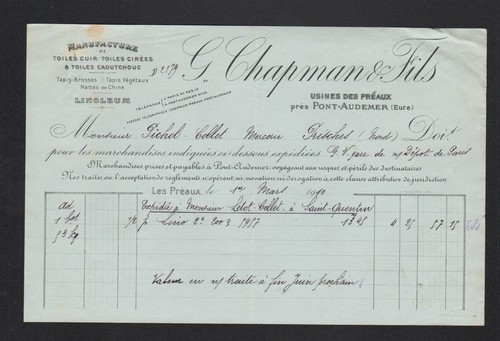 MANUFACTURE
DE
TOILES CUIR · TOILES CIRÉES
& TOILES CAOUTCHOUC
Tapis-Brosses Tapis Végétaux
Nattes de Chine
LINOLEUM
G. Chapman & Fils
USINES DES PRÉAUX
près PONT-AUDEMER (Eure)
Monsieur Pichol-Collet Mercerie Trischer (Nord) Doit
pour les marchandises indiquées ci-dessous expédiées G.V. gare de Dépôt de Paris
Marchandises prises et payables à Pont-Audemer, voyageant aux risques et périls des destinataires
Nos traites ou l'acceptation de règlements n'opèrent ni novation ni dérogation à cette clause attributive de juridiction
Les Préaux, le 1er Mars 1910
ad Expédié à Monsieur Letot-Collet à Saint-Quentin
1 bot
53 kg p. 1957 13 45 4 25 57 25
Valeur en n/traite à fin Juin prochain